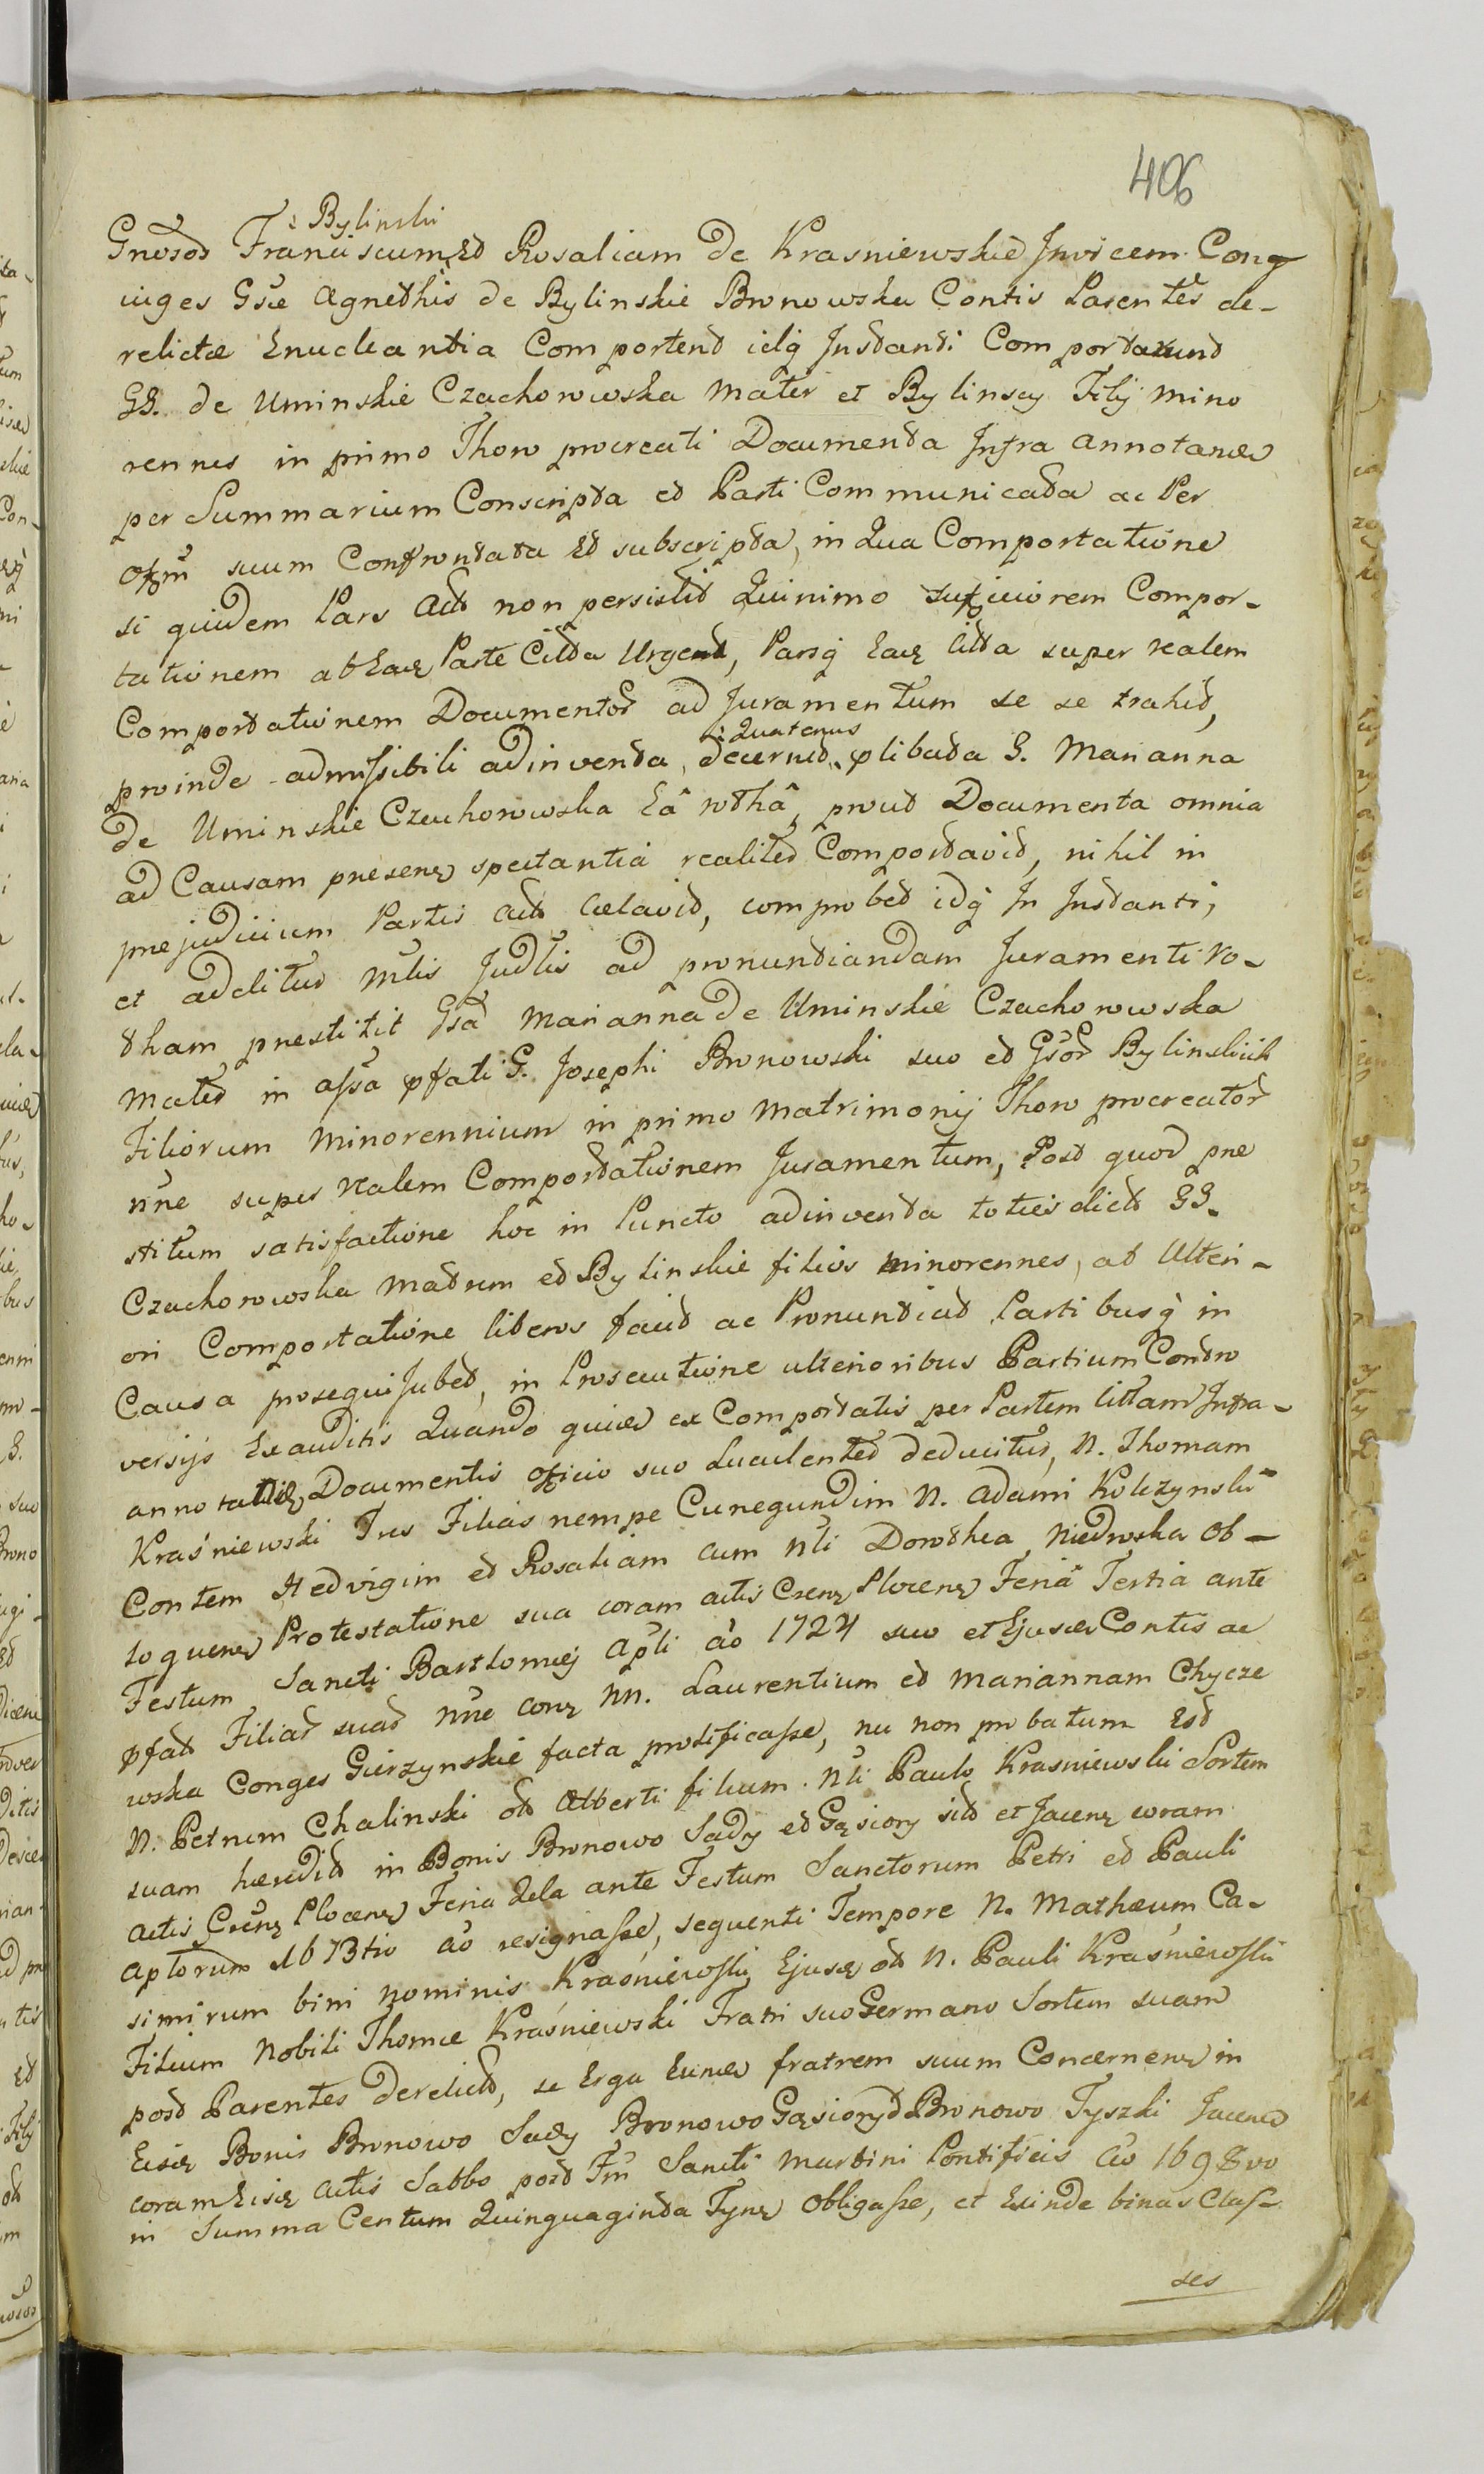 406
: Bylinskii
Gnosos Franciscum et Rosaliam de Krasniewskie Invicem Cong
iuges Gsæ Agnethis de Bylinskie Bronowska Contis Parentes de-
relictæ Enucleantia Comportent idq Instanti Comportarunt
GG. de Uminskie Czachorowska Mater et Bylinscy Filij mino
rennes in primo Thoro procreati Documenta Infra annotata
per Summarium Conscripta et Parti Communicata ac Per
offm suum Confrontata Et subscripta, in Qua Comportatione
si quidem Pars Act non persistit Quinimo sufficiorem Compor-
tationem ab Eaq Parte Citta Urgend, Parsq Eaq Citta super realem
Comportationem Documentor ad Juramentum se se trahit,
: Quatenus
proinde admissibili adinventa, decernit plibata G. Marianna
de Uminskie Czachorowska Eâ rothâ, prout Documenta omnia
ad Causam presens spectantia realiter Comportavit, nihil in
prejudicium Partis Act Cælavit, comprobet idq In Instanti,
et additur Mlis Judlis ad pronuntiandam Juramenti ro-
tham prestitit Gsa Marianna de Uminskie Czachorowska
Mater in assa pfati G. Josephi Bronowski suo et Gsor Bylinskiich
Filiorum Minorennium in primo Matrimonij Thoro procreator
nne super realem Comportationem Juramentum, Post quod pre
stitum satisfactione hoc in Puncto adinventa toties dict GG.
Czachorowska Matrem et Bylinskie filios Minorennes, ab Ulteri-
ori Comportatione liberos facit ac Pronuntiat Partibusq in
Causa prosequi Jubet, in Prosecutione ulterioribus Partium Contro
versijs Exauditis Quando quid ex Comportatis per Partem Cittam Infra-
annotatis Documentis officio suo Luculenter deducitur, N. Thomam
Kraśniewski Tres Filias nempe Cunegundim N. Adami Kolczynski
Contem Hedvigim et Rosaliam cum Nli Dorothea Niedrwska Ob-
loquens Protestatione sua coram actis Crens Plocens Feria Tertia ante
Festum Sancti Bartlomiej Apli ao 1724 suo et Ejusd Contis ac
pfat Filiar suar nne cong NN. Laurentium et Mariannam Chycze
wska Conges Gierzynskie facta prolificasse, nec non probatum Est
N. Petrum Chalinski ob Alberti filium Nli Paulo Krasniewski Sortem
suam hæredit in Bonis Bronowo Sady et Gąsiory sit et Jacens coram
actis Crens Plocens Feria 2da ante Festum Sanctorum Petri et Pauli
Aplorum 1673tio ao resignasse, sequenti Tempore N. Mathæum Ca-
simirum bini nominis Kraśniewski Ejusd ob N. Pauli Kraśniewski
Filium Nobili Thomæ Kraśniewski Fratri suo Germano Sortem suam
post Parentes derelict, se Erga Eund fratrem suum Concernens in
Eisd Bonis Bronowo Sady Bronowo Gąsiory et Bronowo Tyszki Jacens
coram Eisd Actis Sabbo post Fm Sancti Martini Pontificis ao 1698vo
in Summa Centum Quinquaginta Tyns Obligasse, et Exinde binas Clas-
ses